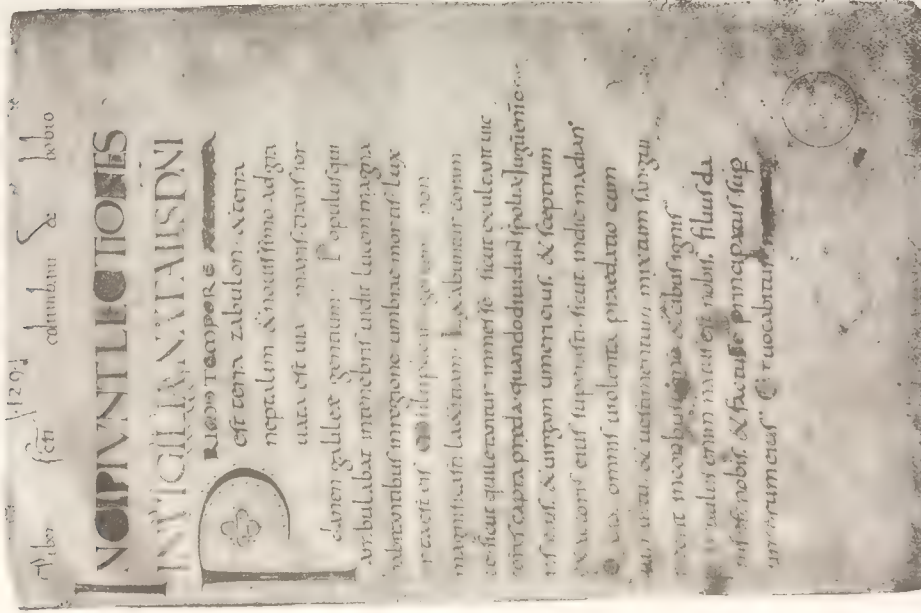 Liber sc̄ti columbani de bobio
INCIPIVNT LECTIONES
IN VIGILIA NATALIS DNI
PRIMO TEMPORE
est terra zabulon & terra
neptalim & nouissimo adgra
uata est uia maris transior
danen galileę gentium Populus qui
ambulabat intenebris uidit lucem magna
habitantibus inregione umbrae mortis lux
orta est eis multiplicasti non
magnificasti laetitiam Laetabuntur coram
te sicut qui laetantur inmesse sicut exultant uic
tores capta praeda quando diuidunt spolia Iugu enim
eius & uirgam umeri eius & sceptrum
exactoris eius superasti sicut indie madian
Quia omnis uiolenta praedatio cum
tumultu & uestimentum mixtum sangui
erit incombustione & cibus ignis
Paruulus enim natus est nobis filius da
tus est nobis & factus est principatus sup
umerum eius Et uocabitur